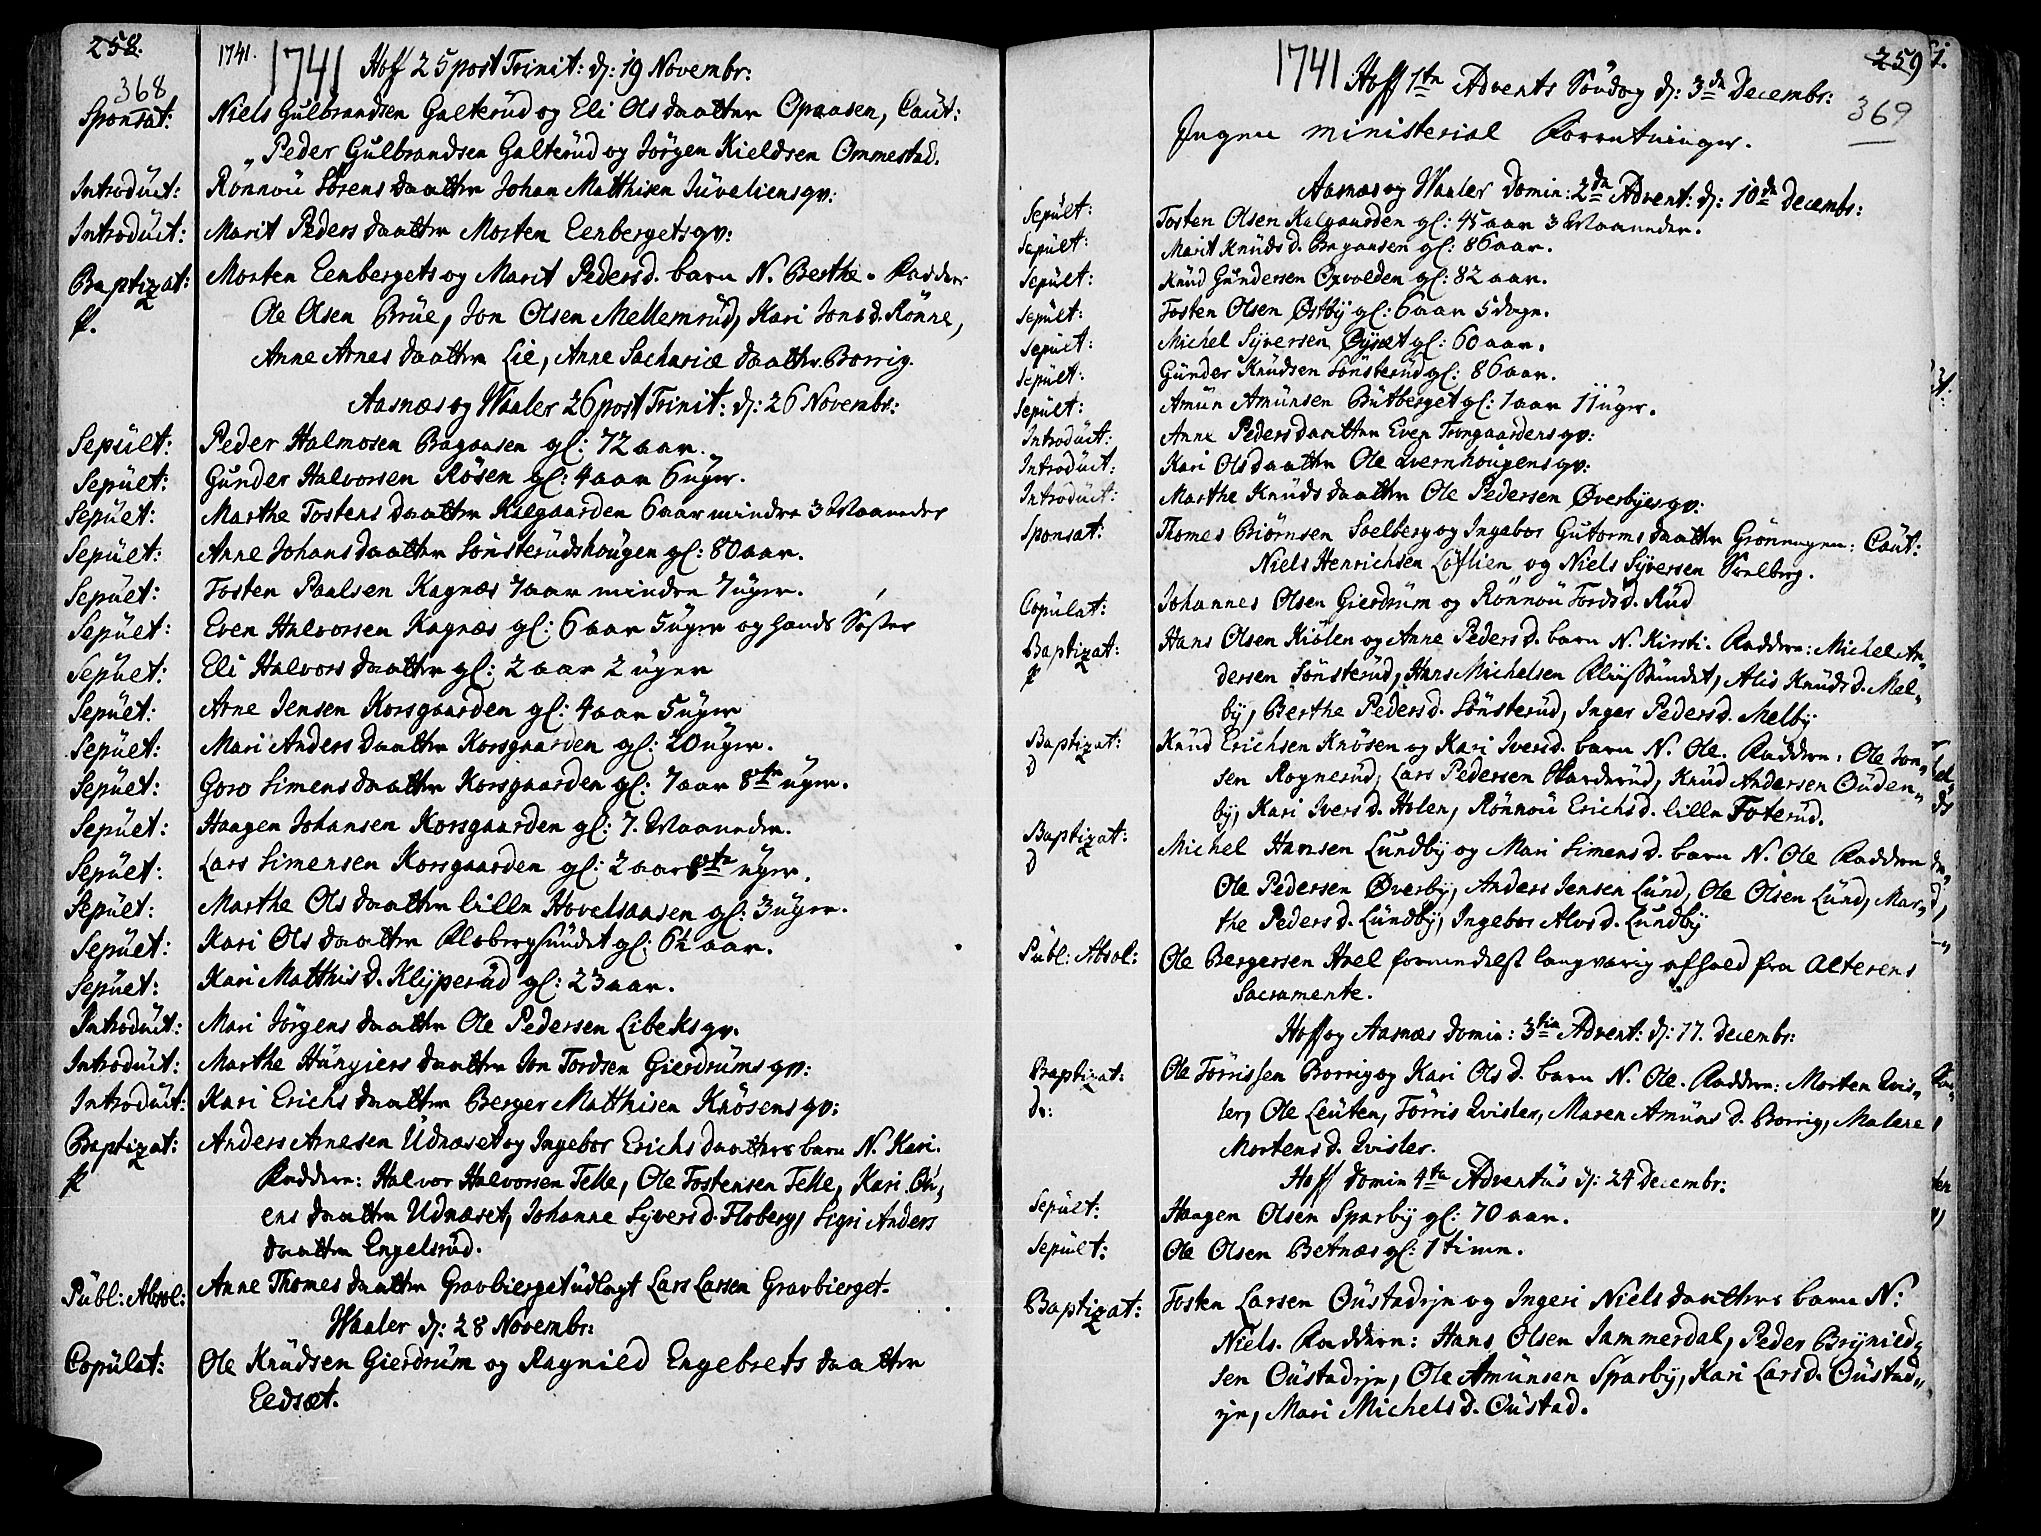 258.
368
1741.
1741 Hoff 25 post Trinit: d: 19 Novembr:
Sponsat: Niels Gulbrandsen Galterud og Eli Olsdaatter Opaasen, Caut:
Peder Gulbrandsen Galterud og Jörgen Kieldsen Ommestad.
Introduct: Rönnou Sörensdaatter Johan Matthisen Juveliens qv:
Introduct: Marit Pedersdaatter Morten Eenbergets qv:
Baptizat: Morten Eenbergets og Marit Pedersd. barn N. Berthe. Faddere
f. Ole Olsen Brue, Jon Olsen Mellemrud, Kari Jonsd. Rönne,
Anne Arnesdaatter Lie, Anne Sachariædaatter Borrig.
Aasnæs og Waaler 26 post Trinit: d: 26 Novembr:
Sepult: Peder Halmosen Bagaasen gl: 72 aar.
Sepult: Gunder Halvorsen Rösen gl: 4 aar 6 uger.
Sepult: Marthe Tostensdaatter Kalgaarden 6 aar mindre 3 Maaneder
Sepult: Anne Johansdaatter Sönsterudshougen gl: 80 aar.
Sepult: Tosten Paulsen Kagnæs 7 aar mindre 7 uger.
Sepult: Even Halvorsen Kagnæs gl: 6 aar 5 uger og hands Söster
Sepult: Eli Halvorsdaatter gl: 2 aar 2 uger
Sepult: Arne Jensen Korsgaarden gl: 4 aar 5 uger
Sepult: Mari Andersdaatter Korsgaarden gl: 20 uger.
Sepult: Goro Simensdaatter Korsgaarden gl: 7 aar 8te uger.
Sepult: Haagen Johansen Korsgaarden gl: 7. Maaneder.
Sepult: Lars Simensen Korsgaarden gl: 2 aar 8te uger.
Sepult: Marthe Olsdaatter lille Hovelsaasen gl: 3 uger.
Sepult: Kari Olsdaatter Flobergsundet gl: 6½ aar.
Sepult: Kari Matthisd. Klyperud gl: 23 aar.
Introduct: Mari Jörgensdaatter Ole Pedersen Libeks qv.
Introduct: Marthe Hungiersdaatter Jon Tordsen Gierdrums qv:
Introduct: Kari Erichsdaatter Berger Matthisen Knösens qv:
Baptizat: Anders Arnesen Udnæset og Ingebor Erichsdaatters barn N. Kari.
f Faddere: Halvor Halvorsen Telle, Ole Tostensen Telle, Kari Ou,,
ens daatter Udnæset, Johanne Syversd. Floberg, Sigri Anders
daatter Engelsrud.
Publ: Absol: Anne Thomesdaatter Gravbierget udlagt Lars Larsen Gravbierget.
Waaler d: 28 Novembr:
Copulat: Ole Knudsen Gierdrum og Ragnild Engebretsdaatter
Eedsæt.
259
369
1741 Hoff 1te Advents Söndag d: 3de Decembr:
Ingen ministerial Forretninger.
Aasnæs og Waaler Domin: 2da Advent: d: 10de Decembr:
Sepult: Tosten Olsen Kalgaarden gl: 45 aar 3 Maaneder.
Sepult: Marit Knudsd. Bagaasen gl: 86 aar.
Sepult: Knud Gundersen Oxvolden gl: 82 aar.
Sepult: Tosten Olsen Østby gl: 6 aar 5 dage.
Sepult: Michel Syversen Øyset gl: 60 aar.
Sepult: Gunder Knudsen Sönsterud gl: 86 aar.
Sepult: Amun Amunsen Butberget gl: 1 aar 11 uger.
Introduct: Anne Pedersdaatter Even Trongaardens qv:
Introduct: Kari Olsdaatter Ole Qvernhougens qv:
Introduct: Marthe Knudsdaatter Ole Pedersen Øverbyes qv:
Sponsat: Thomes Biörnsen Soelberg og Ingebor Gutormsdaatter Grönnagen: Caut:
Niels Henrichsen Löflien og Niels Syversen Soelberg.
Copulat: Johannes Olsen Gierdrum og Rönnou Tordsd. Rud
Baptizat: Hans Olsen Kiölen og Anne Pedersd. barn N. Kirsti. Faddere: Michel An,,
f dersen Sönsterud, Hans Michelsen Flissundet, Alis Knudsd. Mel,,
by, Berthe Pedersd. Sönsterud, Inger Pedersd. Melby
Baptizat: Knud Erichsen Knösen og Kari Iversd. barn N. Ole. Faddere: Ole Jon,,
D sen Rognerud, Lars Pedersen Harderud, Knud Andersen Ouden,,
by, Kari Iversd. Holen, Rönnou Erichsd. lille Foterud.
Baptizat: Michel Hansen Lundby og Mari Simensd. barn N. Ole Faddere
D Ole Pedersen Øverby, Anders Jensen Lund, Ole Olsen Lund, Mar,,
the Pedersd. Lundby, Ingebor Alvsd. Lundby
Publ: Absol: Ole Bergersen Hoel formedelst langvarig afhold fra Alterens
Sacramente.
Hoff og Aasnæs Domin: 3tia Advent: d: 17. Decembr:
Baptizat: Ole Törrissen Borrig og Kari Olsd. barn N. Ole. Faddere: Morten Qvis,,
D: ler, Ole Leuten, Törris Qvisler, Maren Amunsd. Borrig, Malene
Mortensd. Qvisler.
Hoff Domin 4ta Adventus d: 24 Decembr:
Sepult: Haagen Olsen Sparby gl: 70 aar.
Sepult: Ole Olsen Betnæs gl: 1 time.
Baptizat: Tosten Larsen Oustadeje og Ingeri Nielsdaatters barn N:
Niels. Faddere: Hans Olsen Jammerdal, Peder Brynild,,
sen Oustadeje, Ole Amunsen Sparby, Kari Larsd. Oustad,,
eje, Mari Michelsd. Oustad.